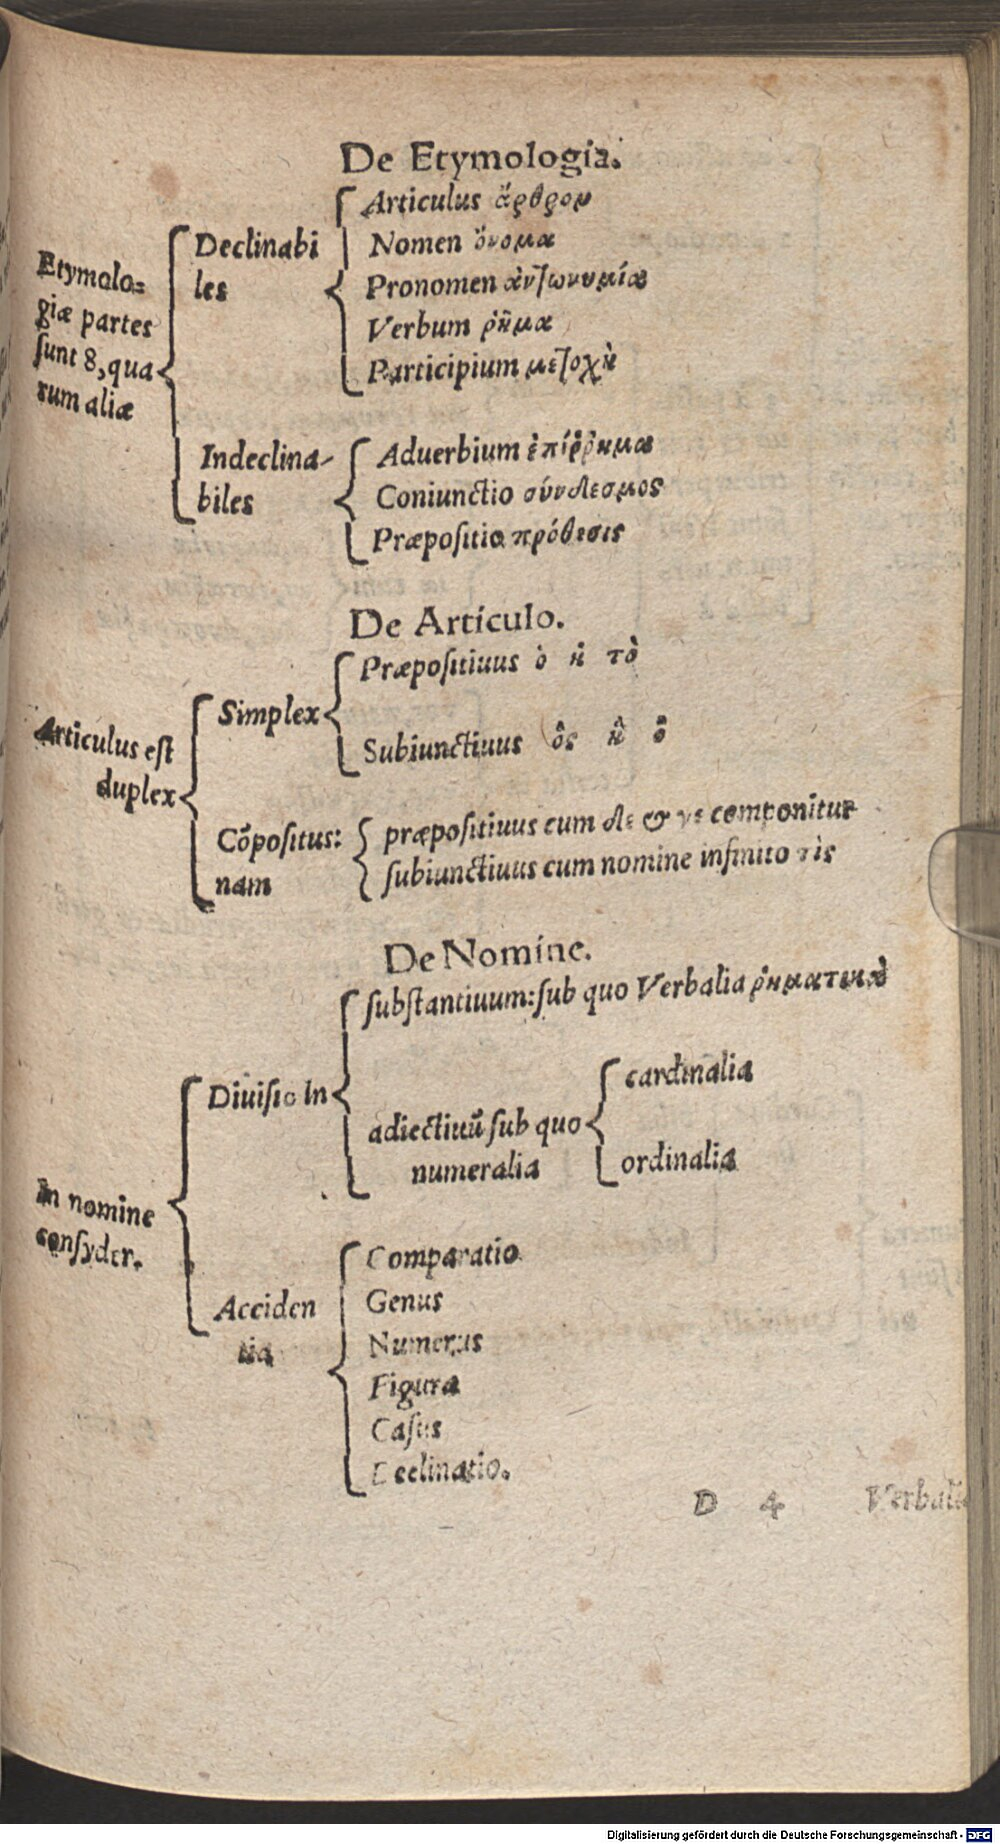 De Etymologia.
Etymolo=
giæ partes
ſunt 8, qua
rum aliæ
Declinabi
les
Articulus ἄρθρον
Nomen ὄνομα
Pronomen ἀντωνυμία
Verbum ῥῆμα
Participium μετοχὴ
Indeclina-
biles
Aduerbium ἐπίῤῥημα
Coniunctio σύνδεσμος
Præpoſitio πρόθεσις
De Articulo.
Articulus eſt
duplex
Simplex
Præpoſitiuus ὁ ἡ τὸ
Subiunctiuus ὃς ἣ ὃ
Cōpoſitus:
nam
præpoſitiuus cum δε & γε componitur
ſubiunctiuus cum nomine infinito τὶς
De Nomine.
In nomine
conſyder.
Diuiſio in
ſubſtantiuum: ſub quo Verbalia ῥηματικὰ
adiectiuū ſub quo
numeralia
cardinalia
ordinalia
Acciden
tia
Comparatio
Genus
Numerus
Figura
Caſus
Declinatio.
D 4 Verbalia
Digitalisierung gefördert durch die Deutsche Forschungsgemeinschaft - DFG